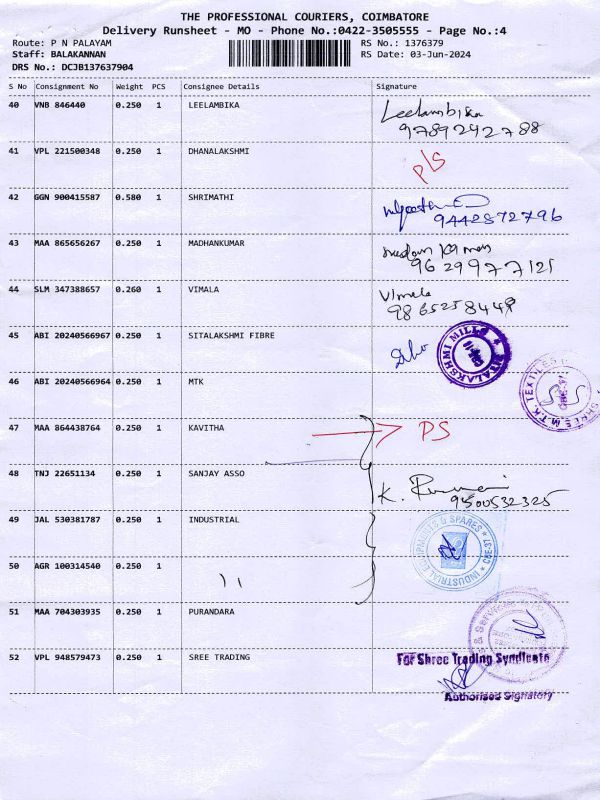 THE PROFESSIONAL COURIERS, COIMBATORE
Delivery Runsheet - MO - Phone No.:0422-3505555 - Page No.:4
Route: P N PALAYAM RS No.: 1376379
Staff: BALAKANNAN RS Date: 03-Jun-2024
DRS No.: DCJB137637904
S No Consignment No Weight PCS Consignee Details Signature
40 VNB 846440 0.250 1 LEELAMBIKA Leelambika
9789242788
41 VPL 221500348 0.250 1 DHANALAKSHMI P/S
42 GGN 900415587 0.580 1 SHRIMATHI
9442872796
43 MAA 865656267 0.250 1 MADHANKUMAR
9629977121
44 SLM 347388657 0.260 1 VIMALA Vimala
9865258449
45 ABI 20240566967 0.250 1 SITALAKSHMI FIBRE SITALAKSHMI MILLS
46 ABI 20240566964 0.250 1 MTK SHREE M.T.K. TEXTILES
47 MAA 864438764 0.250 1 KAVITHA PS
48 TNJ 22651134 0.250 1 SANJAY ASSO K.
9500532325
49 JAL 530381787 0.250 1 INDUSTRIAL INDUSTRIAL EQUIPMENTS & SPARES
50 AGR 100314540 0.250 1 11
51 MAA 704303935 0.250 1 PURANDARA
52 VPL 948579473 0.250 1 SREE TRADING For Shree Trading Syndicate
Authorised Signatory